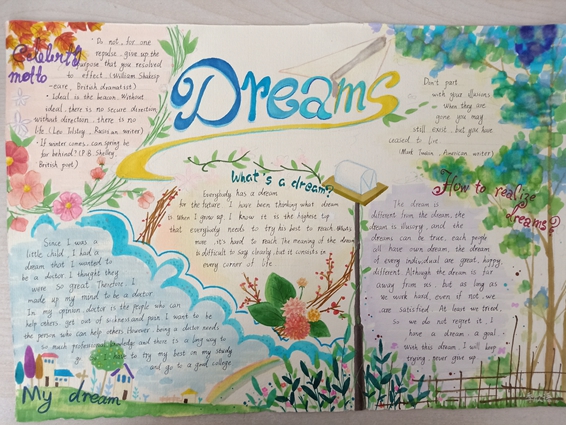 Dreams
Celebrity
motto
· Do not, for one
repulse, give up the
purpose that you resolved
to effect (William Shakesp
-eare, British dramatist)
· Ideal is the beacon. Without
ideal, there is no secure direction
without direction, there is no
life (Leo Tolstoy, Russian writer)
· If winter comes, can spring be
far behind? (P.B. Shelley,
British poet)
Don't part
with your illusions
When they are
gone you may
still exist, but you have
ceased to live
(Mark Twain, American writer)
What's a dream?
Everybody has a dream
for the future. I have been thinking what dream
is when I grow up. I know it is the highest tip
that everybody needs to try his best to reach. Whats
more, it's hard to reach. The meaning of the dream
is difficult to say clearly, but it consists in
every corner of life.
How to realize
dreams?
The dream is
different from the dream, the
dream is illusory, and the
dreams can be true, each people
all have own dream, the dream
of every individual are great, happy
different. Although the dream is far
away from us, but as long as
we work hard, even if not, we
are satisfied. At least we tried,
So we do not regret it, I
have a dream, a goal.
With this dream, I will keep
trying, never give up.
Since I was a
little child, I had a
dream that I wanted to
be a doctor. I thought they
were so great. Therefore, I
made up my mind to be a doctor.
In my opinion, doctor is the people who can
help others get out of sickness and pain. I want to be
the person who can help others. However, being a doctor needs
so much professional knowledge and there is a long way to
go. I have to try my best on my study
and go to a good college
My dream